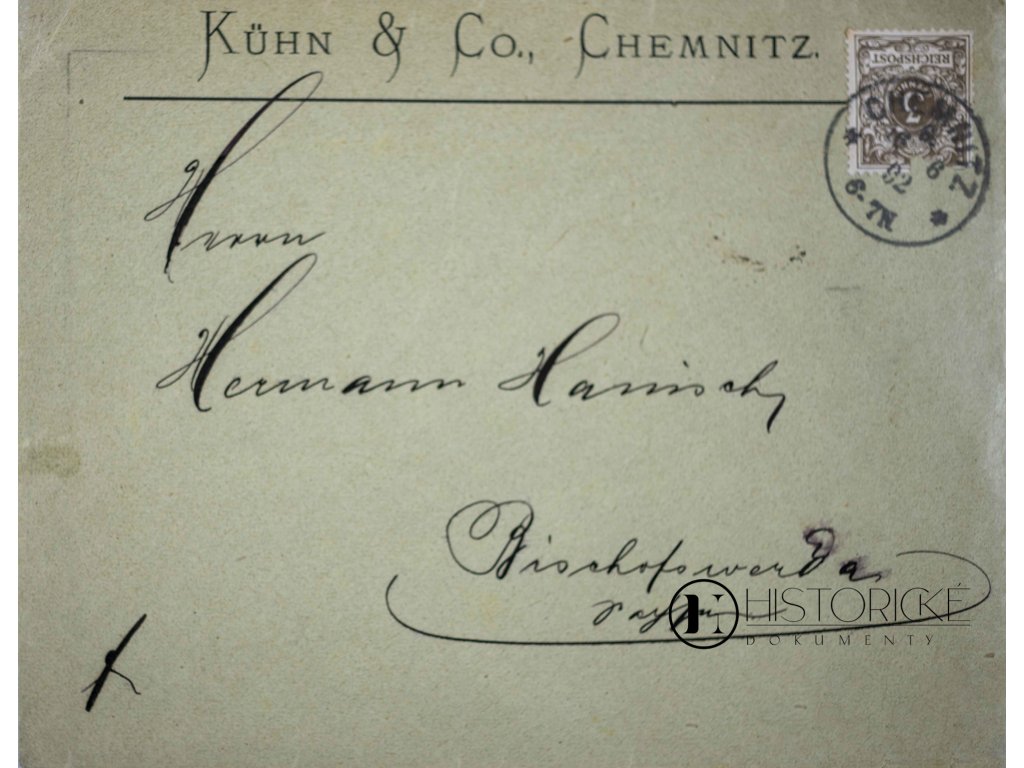 KÜHN & CO., CHEMNITZ.
REICHSPOST
3
CHEMNITZ
6
92
6-7N
Herrn
Hermann Hanisch,
Bischofswerda
HISTORICKÉ
DOKUMENTY